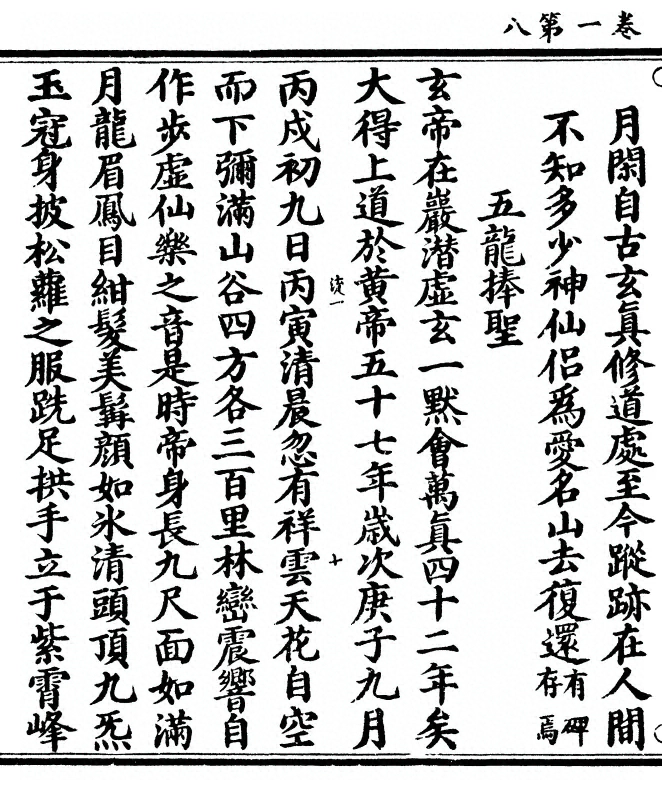 卷一第八
月閑自古玄真修道處至今蹤跡在人間
不知多少神仙侣爲愛名山去復還有碑存焉
五龍捧聖
玄帝在巖潛虛玄一默會萬真四十二年矣
大得上道於黄帝五十七年歲次庚子九月
丙戌初九日丙寅清晨忽有祥雲天花自空
而下彌滿山谷四方各三百里林巒震響自
作步虛仙樂之音是時帝身長九尺面如滿
月龍眉鳳目紺髮美髯顔如氷清頭頂九炁
玉冠身披松蘿之服跣足拱手立于紫霄峰